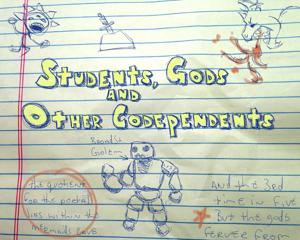 Students, Gods
and
Other Codependents
Brandi's
Golem
The quotient
for the poetai
lies within the
mermaids cave
And the 3rd
time in five
But the gods
ferver from